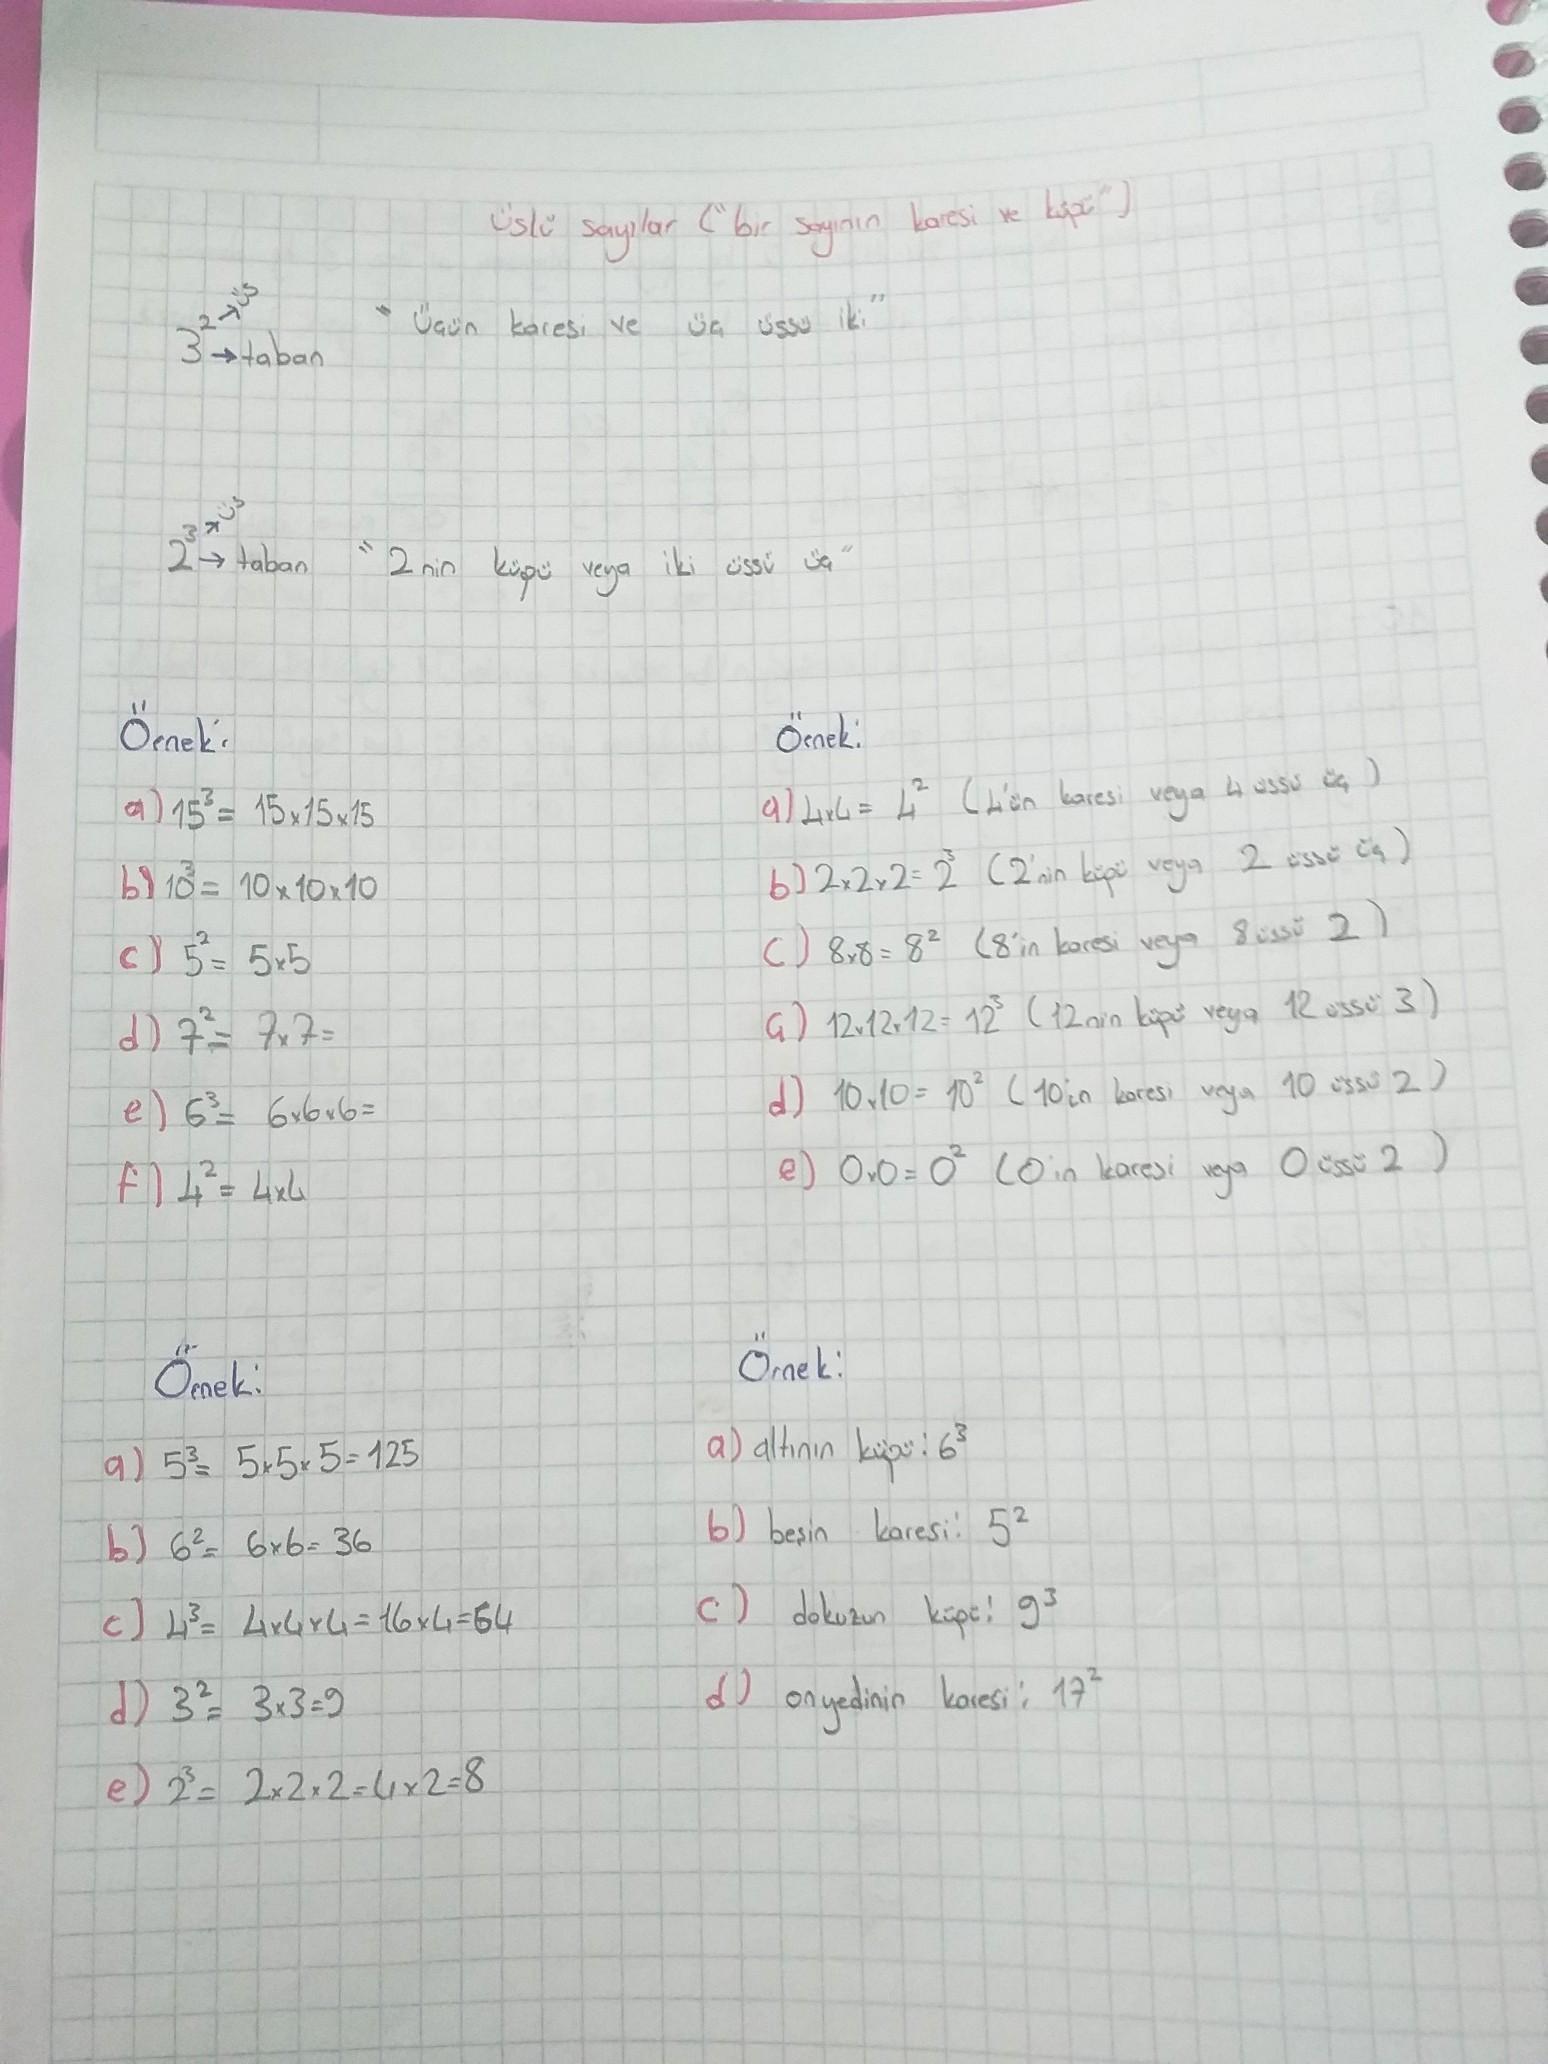 Üslü sayılar ("bir sayının karesi ve küpü")
3² → üs
→ taban
"Üçün karesi ve üç üssü iki"
2³ → üs
→ taban
"2nin küpü veya iki üssü üç"
Örnek:
a) 15³= 15x15x15
b) 10³= 10x10x10
c) 5²= 5x5
d) 7²= 7x7=
e) 6³= 6x6x6=
f) 4²= 4x4
Örnek:
a) 4x4= 4² (4'ün karesi veya 4 üssü üç)
b) 2x2x2= 2³ (2'nin küpü veya 2 üssü üç)
c) 8x8= 8² (8'in karesi veya 8 üssü 2)
ç) 12x12x12= 12³ (12nin küpü veya 12 üssü 3)
d) 10x10= 10² (10in karesi veya 10 üssü 2)
e) 0x0= 0² (0'in karesi veya 0 üssü 2)
Örnek:
a) 5³= 5x5x5=125
b) 6²= 6x6=36
c) 4³= 4x4x4=16x4=64
d) 3²= 3x3=9
e) 2³= 2x2x2=4x2=8
Örnek:
a) altının küpü: 6³
b) beşin karesi: 5²
c) dokuzun küpü: 9³
d) onyedinin karesi: 17²